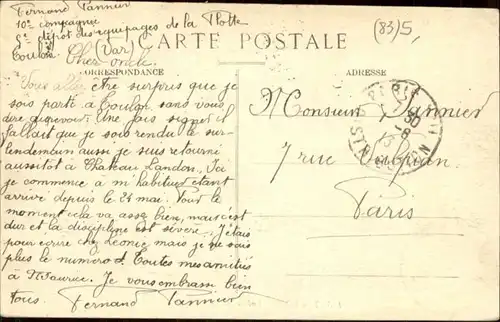 Fernand Tannier
10e compagnie
5e dépot des equipages de la Flotte
Toulon (Var)
(83)5
CARTE POSTALE
CORRESPONDANCE
ADRESSE
Cher oncle
Vous allez être surpris que je
sois parti à Toulon sans vous
dire aurevoir. Une fois signer il
fallait que je sois rendu le sur-
lendemain aussi je suis retourni
aussitôt à Chateau Landon. Ici
je commence a m'habituer étant
arrivé depuis le 24 mai. Tout le
moment cela va assez bien, mais c'est
dur et la discipline est sévère. J'étais
pour écrire chez Leonie mais je ne sais
plus le numero. Toutes mes amitiés
à Maurice. Je vous embrasse bien
tous. Fernand Tannier
Monsieur Tannier
7 rue
Paris